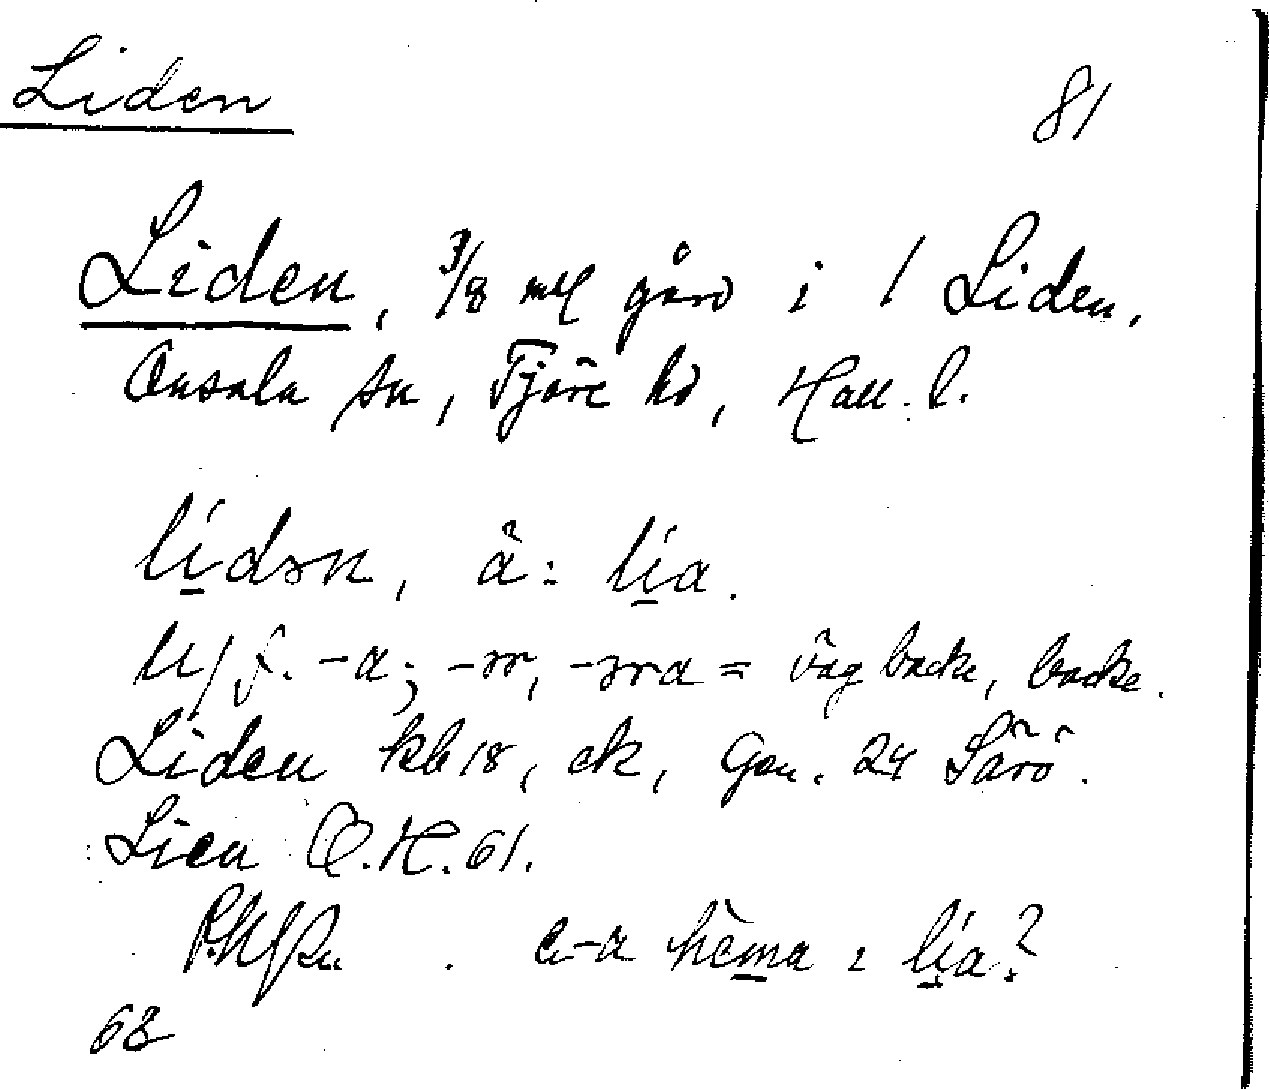 Liden
81
Liden, 3/8 mtl gård i 1 Liden,
Onsala sn, Fjäre hd, Hall. l.
lídən, ä: lía.
f. -a; -ər, -əra = vägbacke, backe.
Liden kb 18, ek, Gen. 24 Särö.
Lien O.H. 61.
hèma i lía?
68